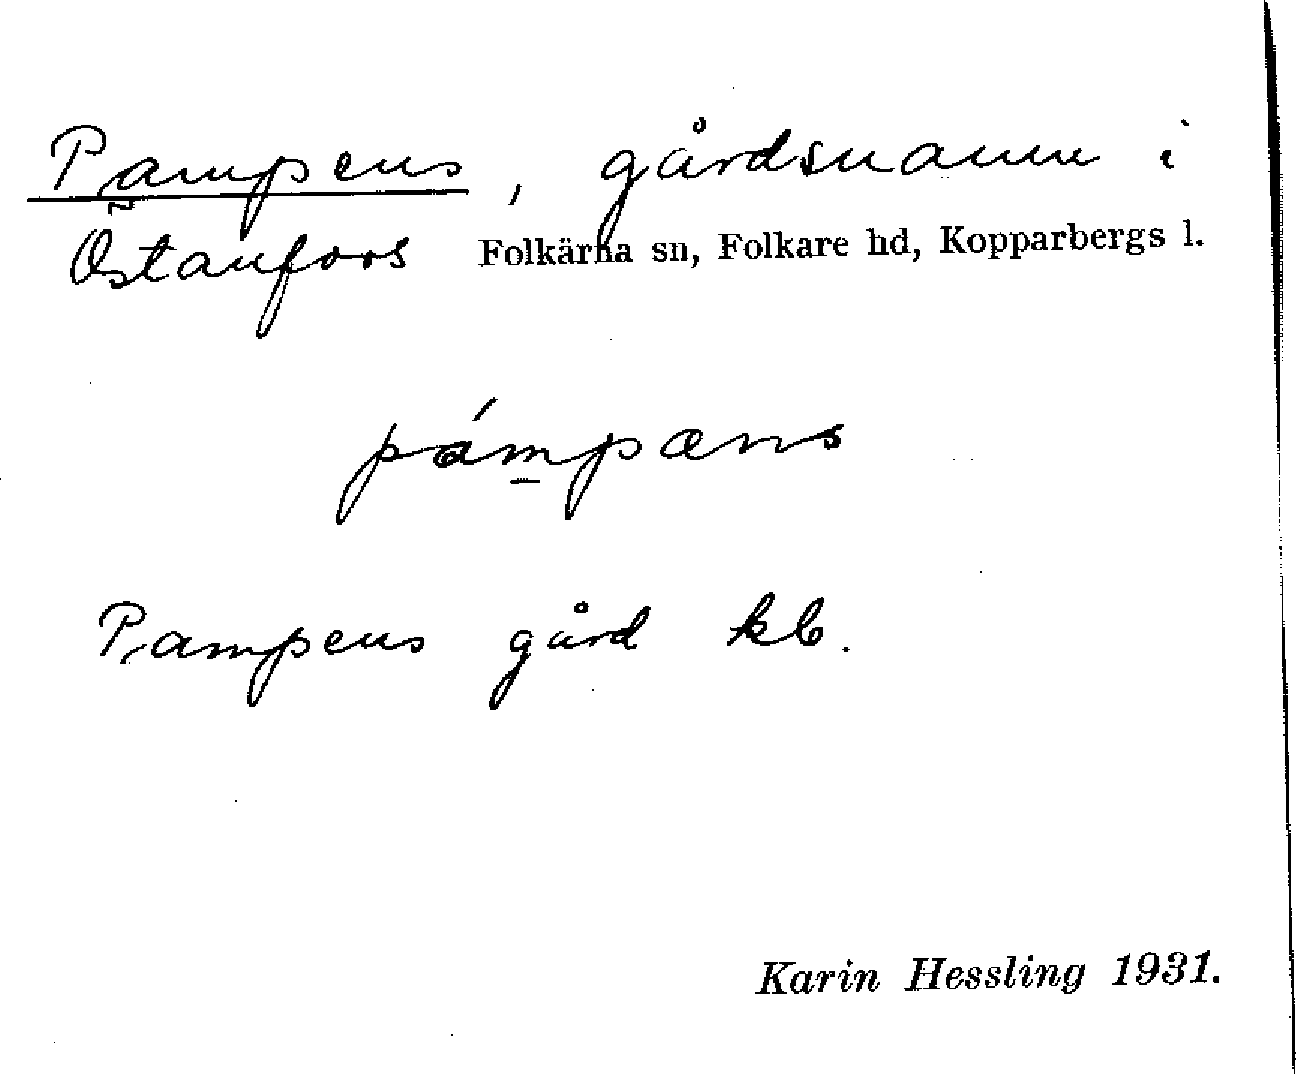 Pampens, gårdsnamn i
Östanfors Folkärna sn, Folkare hd, Kopparbergs l.
pám̱pæns
Pampens gård kb.
Karin Hessling 1931.